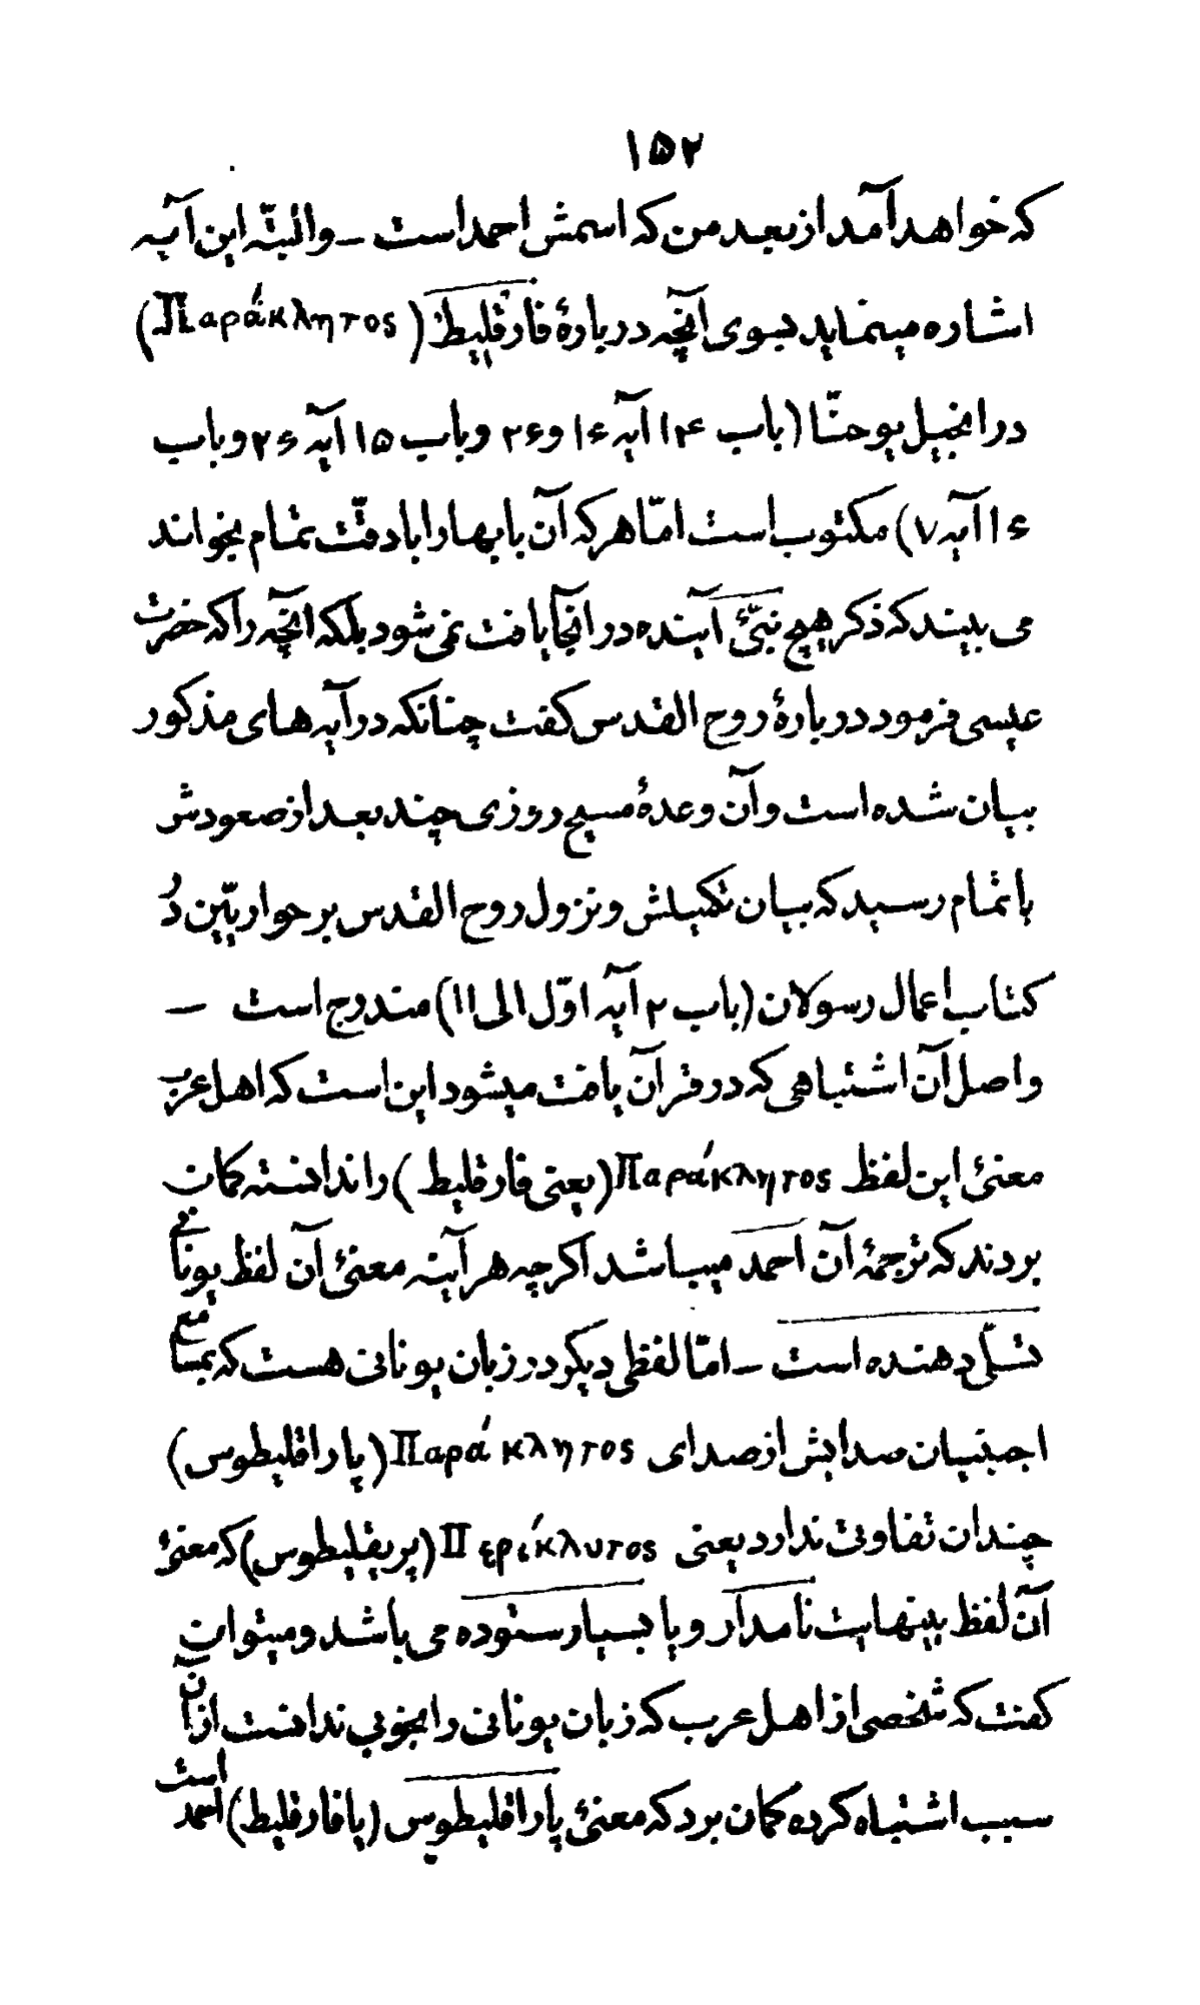 ۱۵۲
که خواهد آمد از بعد من که اسمش احمد است ــ والبتّه این آیه
اشاره مینماید بسوی آنچه دربارهٔ فارقلیط (Παράκλητος)
در انجیل یوحنّا (باب ۱۴ آیه ۱۶ و ۲۶ و باب ۱۵ آیه ۲۶ و باب
۱۶ آیه ۷) مکتوب است امّا هر که آن بابها را با دقّت تمام بخواند
می بیند که ذکر هیچ نبیّ آینده در آنجا یافت نمی شود بلکه آنچه را که حضرت
عیسی فرمود دربارهٔ روح القدس گفت چنانکه در آیه های مذکور
بیان شده است و آن وعدهٔ مسیح روزی چند بعد از صعودش
باتمام رسید که بیان تکمیلش و نزول روح القدس بر حواریّین در
کتاب اعمال رسولان (باب ۲ آیه اوّل الی ۱۱) مندرج است ــ
و اصل آن اشتباهی که در قرآن یافت میشود این است که اهل عرب
معنیٔ این لفظ Παράκλητος (یعنی فارقلیط) را ندانسته کمان
بردند که ترجمهٔ آن احمد میباشد اکرچه هر آینه معنیٔ آن لفظ یونانی
تسلّی دهنده است ــ امّا لفظی دیکر در زبان یونانی هست که بمسامع
اجنبیان صدایش از صدای Παράκλητος (پاراقلیطوس)
چندان تفاوتی ندارد یعنی Περίκλυτος (پریقلیطوس) که معنیٔ
آن لفظ بینهایت نامدار و یا بسیار ستوده می باشد و میتوان
کفت که شخصی از اهل عرب که زبان یونانی را بخوبی ندانست از آن
سبب اشتباه کرده کمان برد که معنیٔ پاراقلیطوس (یا فارقلیط) احمد است